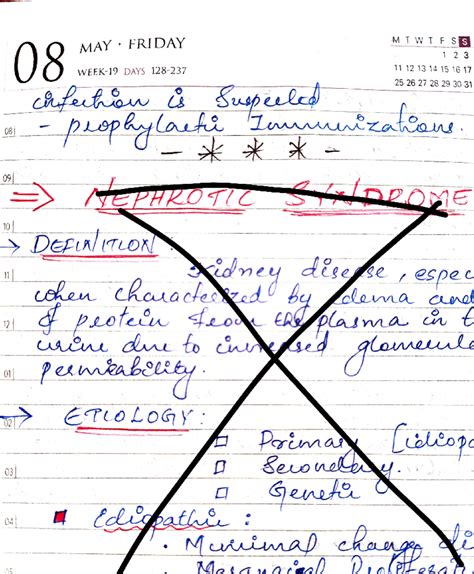 08
MAY · FRIDAY
WEEK-19 DAYS 128-237
M T W T F S S
1 2 3
11 12 13 14 15 16 17
25 26 27 28 29 30 31
infection is Suspected
08
- prophylacti Immunizations.
- * * * -
09
⇒ NEPHROTIC SYNDROME
10
→ DEFINITION :
11
Kidney disease, espec
when characterized by edema and
12
of protein from the plasma in t
urine due to increased glomerula
01
permeability.
02
→ ETIOLOGY :
□ Primary [idiopa
03
□ Secondary.
□ Genetic
04
■ Ediopathic :
· Minimal change di
· Mesangial Proliferat